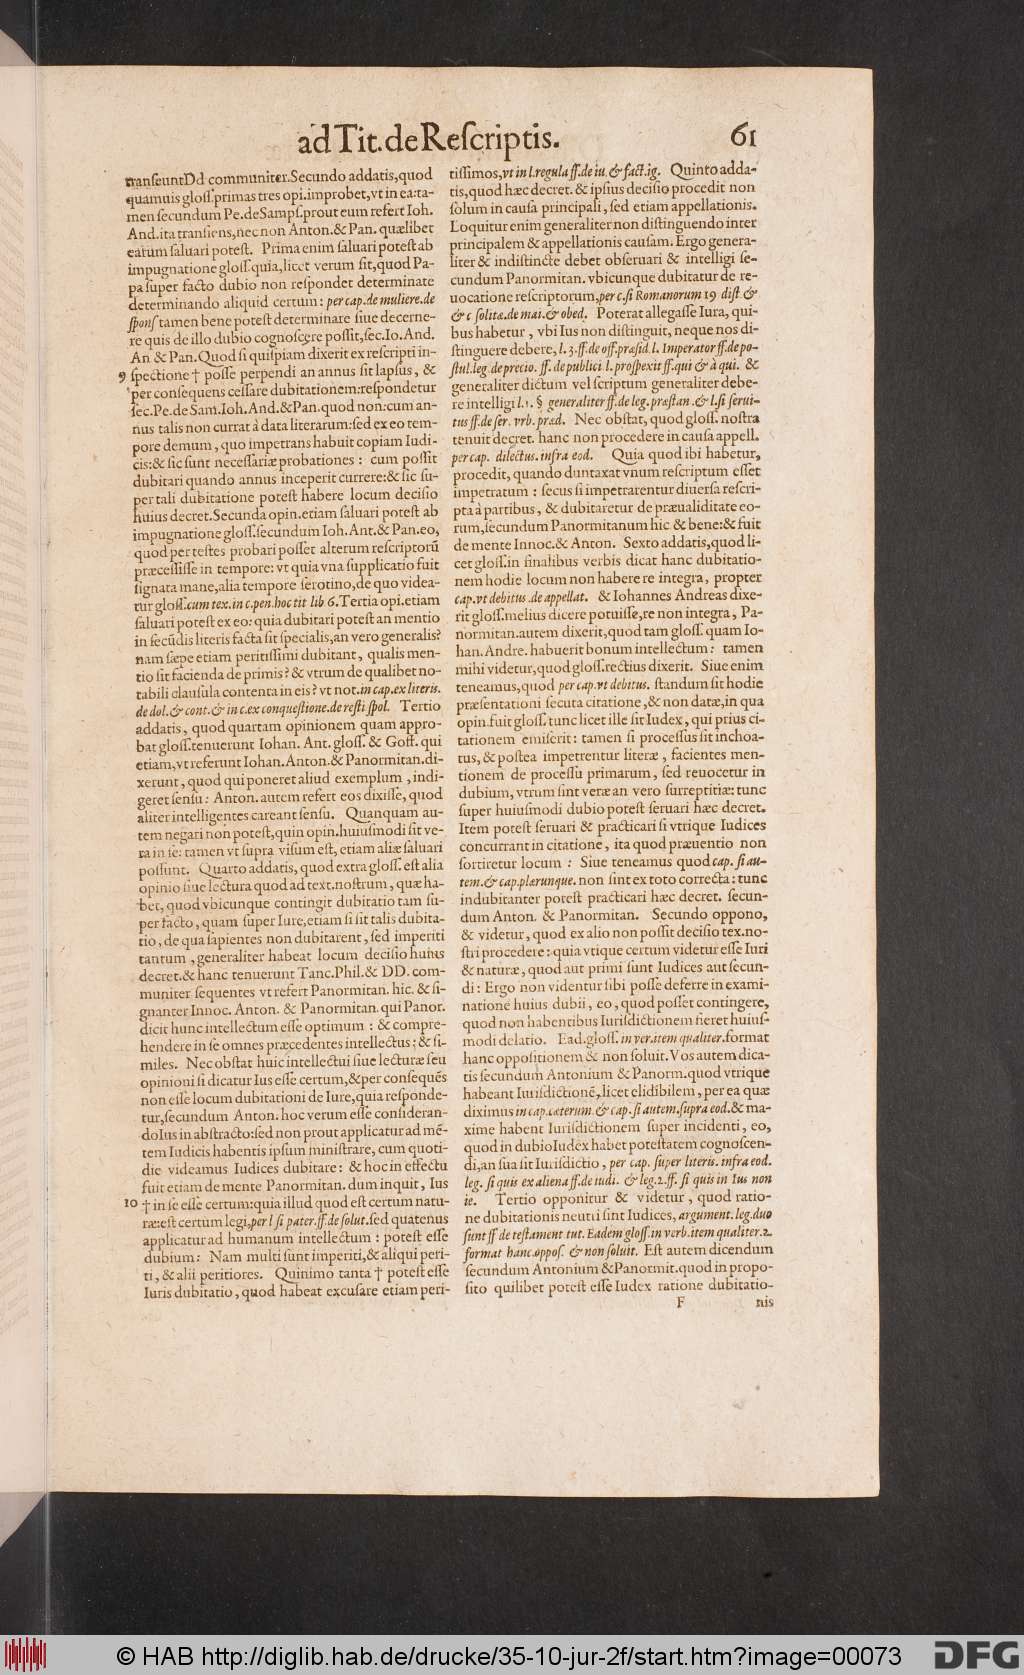 ad Tit. de Reſcriptis. 61
tranſeunt Dd communiter. Secundo addatis, quod
quamuis gloſſ. primas tres opi. improbet, vt in ea: ta-
men ſecundum Pe. de Sampſ. prout eum refert Ioh.
And. ita tranſiens, nec non Anton. & Pan. quælibet
earum ſaluari poteſt. Prima enim ſaluari poteſt ab
impugnatione gloſſ. quia, licet verum ſit, quod Pa-
pa ſuper facto dubio non reſpondet determinate
determinando aliquid certum: per cap. de muliere. de
ſponſ tamen bene poteſt determinare ſiue decerne-
re quis de illo dubio cognoſcere poſſit, ſec. Io. And.
An & Pan. Quod ſi quiſpiam dixerit ex reſcripti in-
9 ſpectione † poſſe perpendi an annus ſit lapſus, &
per conſequens ceſſare dubitationem: reſpondetur
ſec. Pe. de Sam. Ioh. And. & Pan. quod non: cum an-
nus talis non currat à data literarum: ſed ex eo tem-
pore demum, quo impetrans habuit copiam Iudi-
cis: & ſic ſunt neceſſariæ probationes: cum poſſit
dubitari quando annus inceperit currere: & ſic ſu-
per tali dubitatione poteſt habere locum deciſio
huius decret. Secunda opin. etiam ſaluari poteſt ab
impugnatione gloſſ. ſecundum Ioh. Ant. & Pan. eo,
quod per teſtes probari poſſet alterum reſcriptorū
præceſſiſſe in tempore: vt quia vna ſupplicatio fuit
ſignata mane, alia tempore ſerotino, de quo videa-
tur gloſſ. cum tex. in c. pen. hoc tit lib 6. Tertia opi. etiam
ſaluari poteſt ex eo: quia dubitari poteſt an mentio
in ſecūdis literis facta ſit ſpecialis, an vero generalis?
nam ſæpe etiam peritiſſimi dubitant, qualis men-
tio ſit facienda de primis? & vtrum de qualibet no-
tabili clauſula contenta in eis? vt not. in cap. ex literis.
de dol. & cont. & in c. ex conqueſtione. de reſti ſpol. Tertio
addatis, quod quartam opinionem quam appro-
bat gloſſ. tenuerunt Iohan. Ant. gloſſ. & Goff. qui
etiam, vt referunt Iohan. Anton. & Panormitan. di-
xerunt, quod qui poneret aliud exemplum, indi-
geret ſenſu: Anton. autem refert eos dixiſſe, quod
aliter intelligentes careant ſenſu. Quanquam au-
tem negari non poteſt, quin opin. huiuſmodi ſit ve-
ra in ſe: tamen vt ſupra viſum eſt, etiam aliæ ſaluari
poſſunt. Quarto addatis, quod extra gloſſ. eſt alia
opinio ſiue lectura quod ad text. noſtrum, quæ ha-
bet, quod vbicunque contingit dubitatio tam ſu-
per facto, quam ſuper Iure, etiam ſi ſit talis dubita-
tio, de qua ſapientes non dubitarent, ſed imperiti
tantum, generaliter habeat locum deciſio huius
decret. & hanc tenuerunt Tanc. Phil. & DD. com-
muniter ſequentes vt refert Panormitan. hic. & ſi-
gnanter Innoc. Anton. & Panormitan. qui Panor.
dicit hunc intellectum eſſe optimum: & compre-
hendere in ſe omnes præcedentes intellectus: & ſi-
miles. Nec obſtat huic intellectui ſiue lecturæ ſeu
opinioni ſi dicatur Ius eſſe certum, & per conſequēs
non eſſe locum dubitationi de Iure, quia reſponde-
tur, ſecundum Anton. hoc verum eſſe conſideran-
do Ius in abſtracto: ſed non prout applicatur ad mē-
tem Iudicis habentis ipſum miniſtrare, cum quoti-
die videamus Iudices dubitare: & hoc in effectu
fuit etiam de mente Panormitan. dum inquit, Ius
10 † in ſe eſſe certum: quia illud quod eſt certum natu-
ræ: eſt certum legi, per l. ſi pater. ff. de ſolut. ſed quatenus
applicatur ad humanum intellectum: poteſt eſſe
dubium: Nam multi ſunt imperiti, & aliqui peri-
ti, & alii peritiores. Quinimo tanta † poteſt eſſe
Iuris dubitatio, quod habeat excuſare etiam peri-
tiſſimos, vt in l. regula ff. de iu. & fact. ig. Quinto adda-
tis, quod hæc decret. & ipſius deciſio procedit non
ſolum in cauſa principali, ſed etiam appellationis.
Loquitur enim generaliter non diſtinguendo inter
principalem & appellationis cauſam. Ergo genera-
liter & indiſtincte debet obſeruari & intelligi ſe-
cundum Panormitan. vbicunque dubitatur de re-
uocatione reſcriptorum, per c. ſi Romanorum 19 diſt &
& c ſolitæ. de mai. & obed. Poterat allegaſſe Iura, qui-
bus habetur, vbi Ius non diſtinguit, neque nos di-
ſtinguere debere, l. 3. ff. de off. præſid. l. Imperator ff. de po-
ſtul. leg. de precio. ff. de publici l. proſpexit ff. qui & à qui. &
generaliter dictum vel ſcriptum generaliter debe-
re intelligi l. 1. § generaliter ff. de leg. præſtan. & l. ſi ſerui-
tus ff. de ſer. vrb. præd. Nec obſtat, quod gloſſ. noſtra
tenuit decret. hanc non procedere in cauſa appell.
per cap. dilectus. infra eod. Quia quod ibi habetur,
procedit, quando duntaxat vnum reſcriptum eſſet
impetratum: ſecus ſi impetrarentur diuerſa reſcri-
pta à partibus, & dubitaretur de præualiditate eo-
rum, ſecundum Panormitanum hic & bene: & fuit
de mente Innoc. & Anton. Sexto addatis, quod li-
cet gloſſ. in finalibus verbis dicat hanc dubitatio-
nem hodie locum non habere re integra, propter
cap. vt debitus. de appellat. & Iohannes Andreas dixe-
rit gloſſ. melius dicere potuiſſe, re non integra, Pa-
normitan. autem dixerit, quod tam gloſſ. quam Io-
han. Andre. habuerit bonum intellectum: tamen
mihi videtur, quod gloſſ. rectius dixerit. Siue enim
teneamus, quod per cap. vt debitus. ſtandum ſit hodie
præſentationi ſecuta citatione, & non datæ, in qua
opin. fuit gloſſ. tunc licet ille ſit Iudex, qui prius ci-
tationem emiſerit: tamen ſi proceſſus ſit inchoa-
tus, & poſtea impetrentur literæ, facientes men-
tionem de proceſſu primarum, ſed reuocetur in
dubium, vtrum ſint veræ an vero ſurreptitiæ: tunc
ſuper huiuſmodi dubio poteſt ſeruari hæc decret.
Item poteſt ſeruari & practicari ſi vtrique Iudices
concurrant in citatione, ita quod præuentio non
ſortiretur locum: Siue teneamus quod cap. ſi au-
tem. & cap. plærunque. non ſint ex toto correcta: tunc
indubitanter poteſt practicari hæc decret. ſecun-
dum Anton. & Panormitan. Secundo oppono,
& videtur, quod ex alio non poſſit deciſio tex. no-
ſtri procedere: quia vtique certum videtur eſſe Iuri
& naturæ, quod aut primi ſunt Iudices aut ſecun-
di: Ergo non videntur ſibi poſſe deferre in exami-
natione huius dubii, eo, quod poſſet contingere,
quod non habentibus Iuriſdictionem fieret huiuſ-
modi delatio. Ead. gloſſ. in ver. item qualiter. format
hanc oppoſitionem & non ſoluit. Vos autem dica-
tis ſecundum Antonium & Panorm. quod vtrique
habeant Iuriſdictionē, licet elidibilem, per ea quæ
diximus in cap. cæterum. & cap. ſi autem. ſupra eod. & ma-
xime habent Iuriſdictionem ſuper incidenti, eo,
quod in dubio Iudex habet poteſtatem cognoſcen-
di, an ſua ſit Iuriſdictio, per cap. ſuper literis. infra eod.
leg. ſi quis ex aliena ff. de iudi. & leg. 2. ff. ſi quis in Ius non
ie. Tertio opponitur & videtur, quod ratio-
ne dubitationis neutri ſint Iudices, argument. leg. duo
ſunt ff de teſtament tut. Eadem gloſſ. in verb. item qualiter. 2.
format hanc. oppoſ. & non ſoluit. Eſt autem dicendum
ſecundum Antonium & Panormit. quod in propo-
ſito quilibet poteſt eſſe Iudex ratione dubitatio-
F nis
© HAB http://diglib.hab.de/drucke/35-10-jur-2f/start.htm?image=00073
DFG